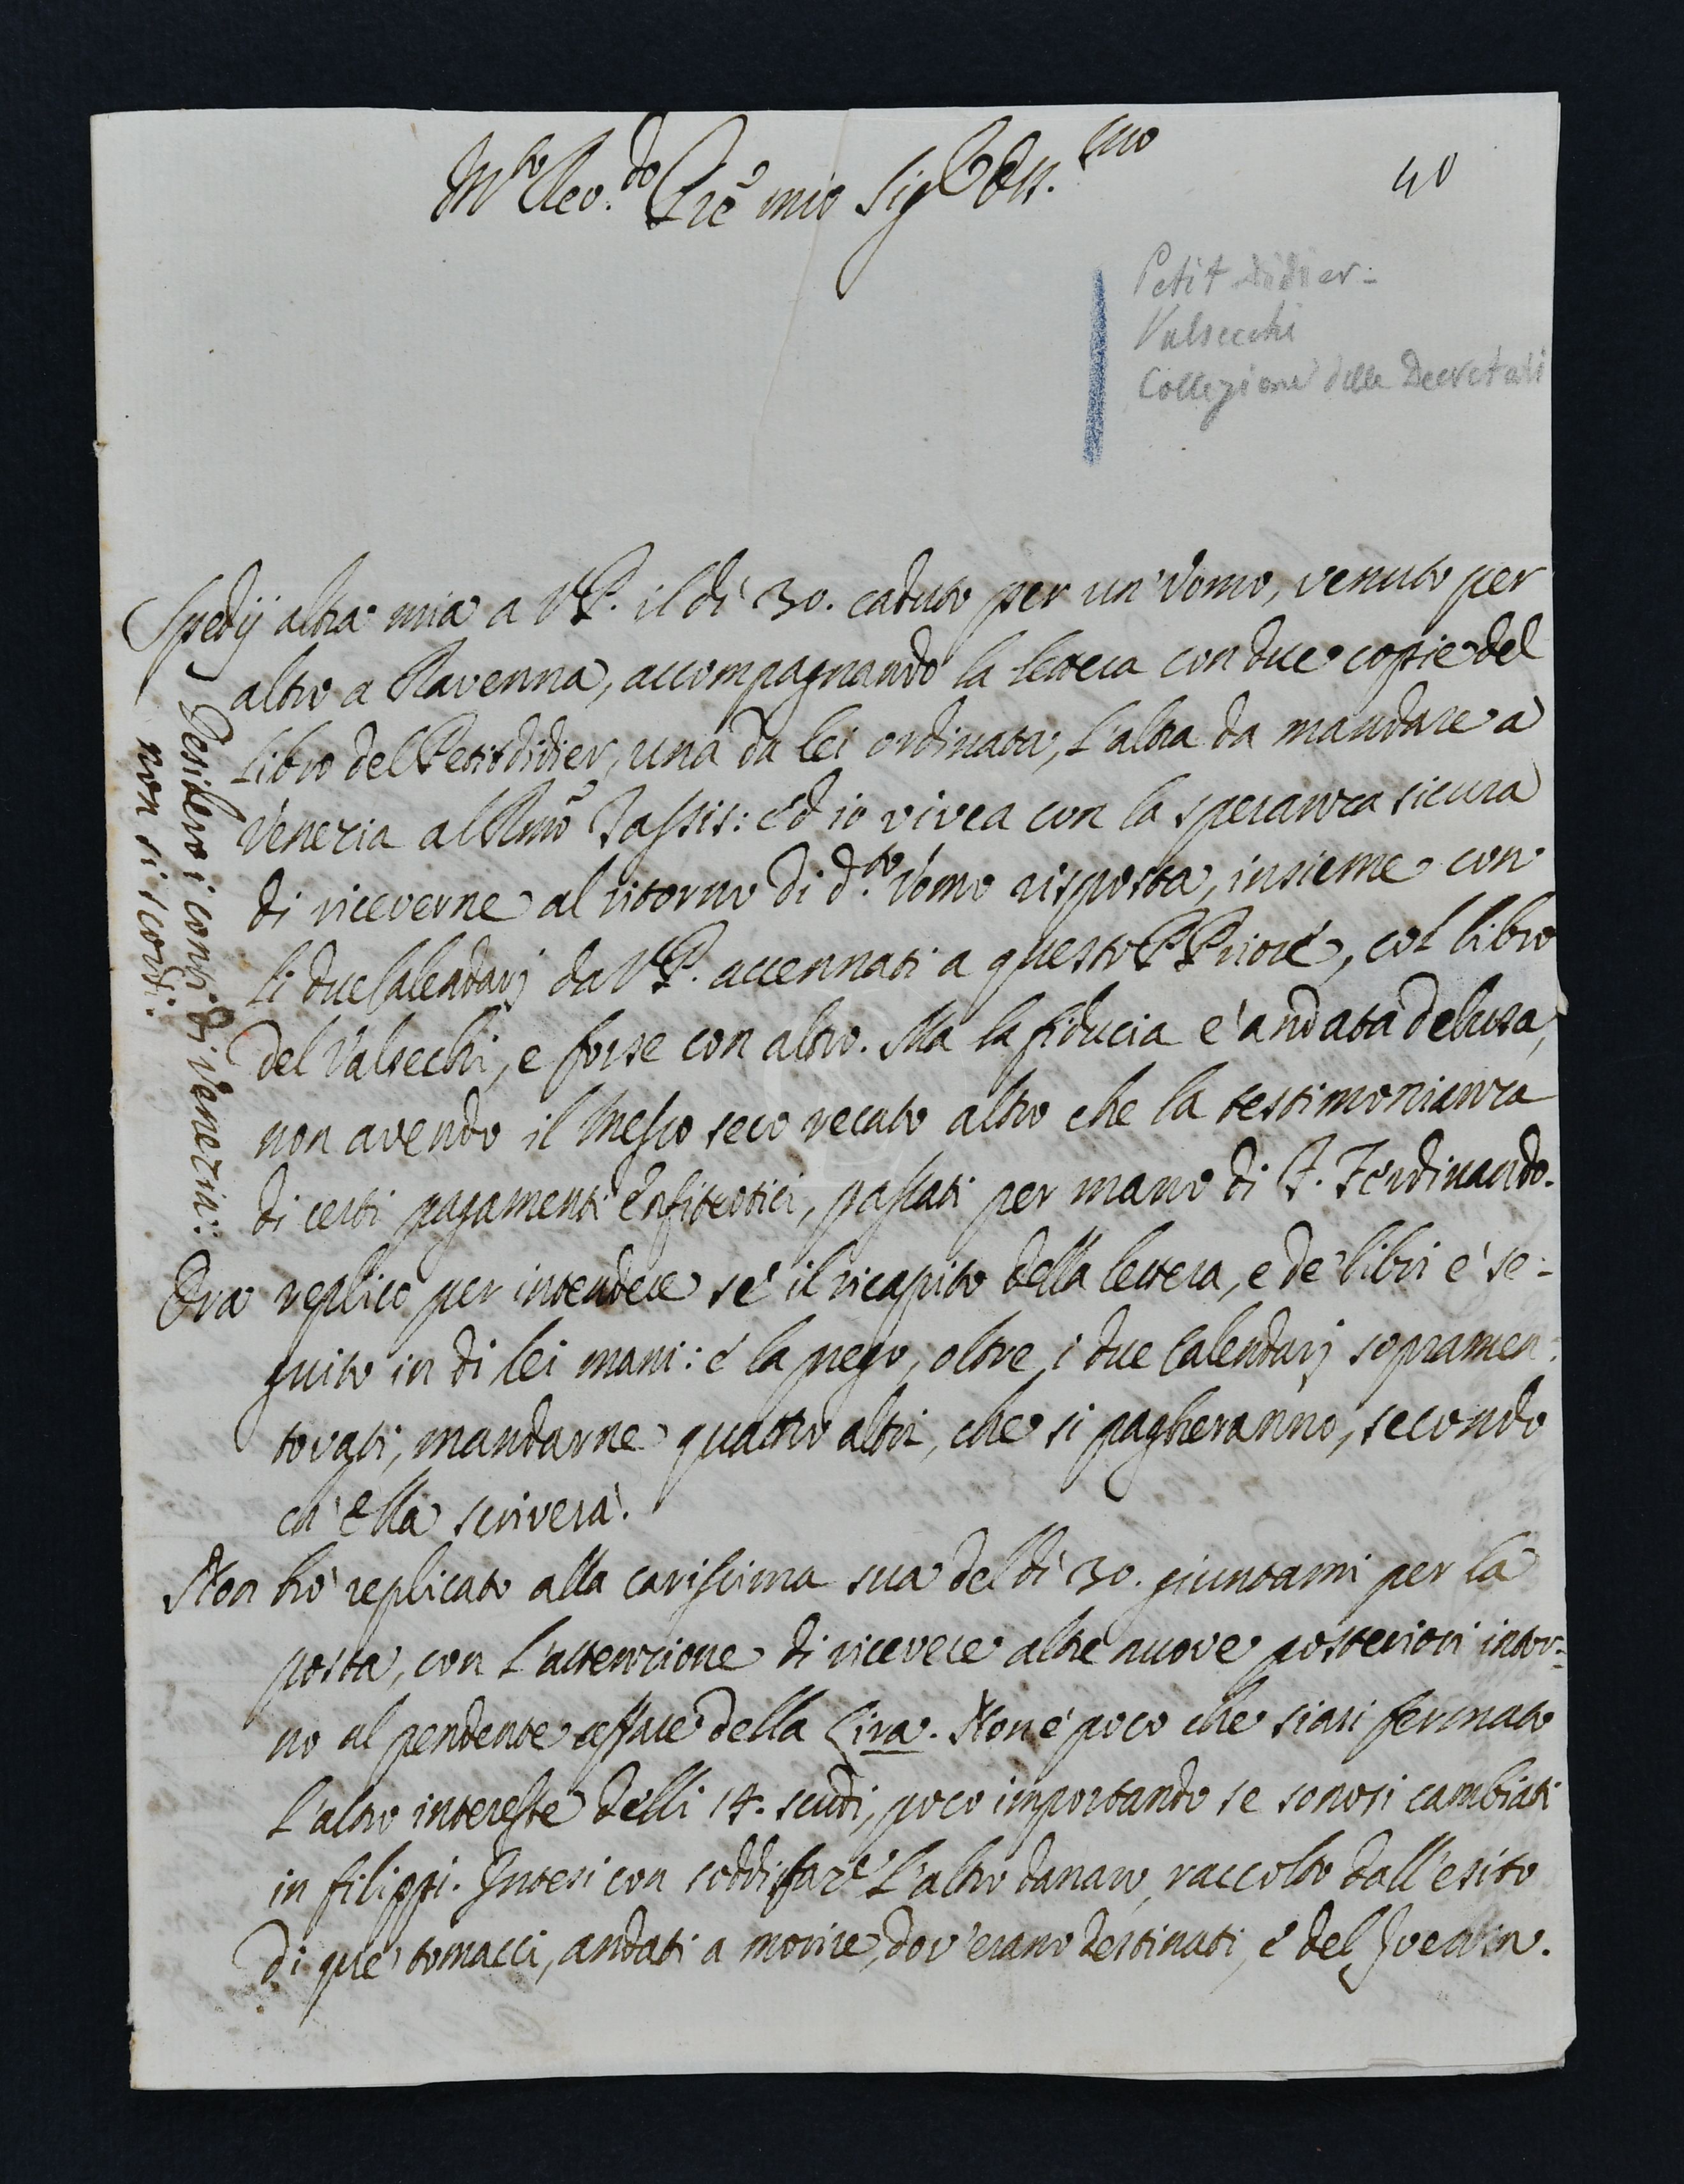 M.to Rev.do P.re mio Sig.r Oss.mo
40
Petit Didier -
Valsecchi
Collezione delle Decretali
Spedij altra mia a V.P. il dì 30. caduto per un' Uomo, venuto per
altro a Ravenna, accompagnando la lettera con due copie del
libro del Petitdidier, una da lei ordinata, l'altra da mandare a
Venezia al Rmo Tassis: Ed io vivea con la speranza sicura
di riceverne al ritorno di d.to Uomo risposta, insieme con
li due Calendarj da V.P. accennati a questo P. Priore, col libro
del Valsecchi, e forse con altro. Ma la fiducia e' andata delusa,
non avendo il Messo seco recato altro che la testimonianza
di certi pagamenti Enfiteotici, passati per mano di P. Ferdinando.
Ora replico per intendere se il ricapito della lettera, e de' libri e' se-
guito in di lei mani: e la prego, oltre i due Calendarj sopramen-
tovati, mandarne quattro altri, che si pagheranno, secondo
ch' Ella scriverà.
Non ho replicato alla carissima sua del dì 30. giuntami per la
posta, con l'attenzione di ricevere altre nuove posteriori intor-
no al pendente affare della Lira. Non e' poco che siasi fermato
l'altro interesse delli 14. scudi, poco importando se sonosi cambiati
in filippi. Intesi con soddisfaz.e l'altro danaro, raccolto dall'esito
di que' tomacci, andati a morire, dov'erano destinati, e del Juenin.
Desidero i conti di Venezia:
non si scordi.